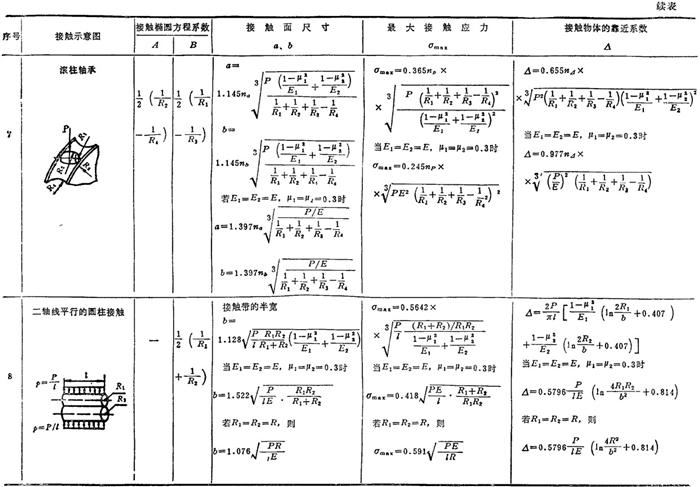 续表
序号 接触示意图 接触椭圆方程系数 接触面尺寸 最大接触应力 接触物体的靠近系数
A B a、b σmax Δ
7
滚柱轴承
P R₁ R₃ R₁ R₂ R₄
1/2 (1/R₂
−1/R₄)
1/2 (1/R₁
−1/R₃)
a=
1.145nₐ ∛[P ((1−μ₁²)/E₁ + (1−μ₂²)/E₂) / (1/R₁+1/R₂+1/R₃−1/R₄)]
b=
1.145n_b ∛[P ((1−μ₁²)/E₁ + (1−μ₂²)/E₂) / (1/R₁+1/R₂+1/R₃−1/R₄)]
若E₁=E₂=E, μ₁=μ₂=0.3时
a=1.397nₐ ∛[(P/E) / (1/R₁+1/R₂+1/R₃−1/R₄)]
b=1.397n_b ∛[(P/E) / (1/R₁+1/R₂+1/R₃−1/R₄)]
σmax=0.365n_P ×
× ∛[P (1/R₁+1/R₂+1/R₃−1/R₄)² / ((1−μ₁²)/E₁ + (1−μ₂²)/E₂)²]
当E₁=E₂=E, μ₁=μ₂=0.3时
σmax=0.245n_P×
×∛[PE² (1/R₁+1/R₂+1/R₃−1/R₄²)²]
Δ=0.655n_Δ×
×∛[P²(1/R₁+1/R₂+1/R₃−1/R₄)((1−μ₁²)/E₁ + (1−μ₂²)/E₂)²]
当E₁=E₂=E, μ₁=μ₂=0.3时
Δ=0.977n_Δ×
×∛[(P/E)² (1/R₁+1/R₂+1/R₃−1/R₄)]
8
二轴线平行的圆柱接触
p=P/l l R₁
R₂
p=P/l
—
1/2 (1/R₁
+1/R₂)
接触带的半宽
b=
1.128√[P/l R₁R₂/(R₁+R₂) ((1−μ₁²)/E₁ + (1−μ₂²)/E₂)]
当E₁=E₂=E, μ₁=μ₂=0.3时
b=1.522√[P/(lE) · R₁R₂/(R₁+R₂)]
若R₁=R₂=R, 则
b=1.076√[PR/(lE)]
σmax=0.5642×
×∛[P/l (R₁+R₂)/R₁R₂ / ((1−μ₁²)/E₁ + (1−μ₂²)/E₂)]
当E₁=E₂=E, μ₁=μ₂=0.3时
σmax=0.418√[PE/l · (R₁+R₂)/(R₁R₂)]
若R₁=R₂=R, 则
σmax=0.591√[PE/(lR)]
Δ=2P/(πl) [(1−μ₁²)/E₁ (ln 2R₁/b +0.407)
+(1−μ₂²)/E₂ (ln 2R₂/b +0.407)]
当E₁=E₂=E, μ₁=μ₂=0.3时
Δ=0.5796 P/(lE) (ln 4R₁R₂/b² +0.814)
若R₁=R₂=R, 则
Δ=0.5796 P/(lE) (ln 4R²/b² +0.814)